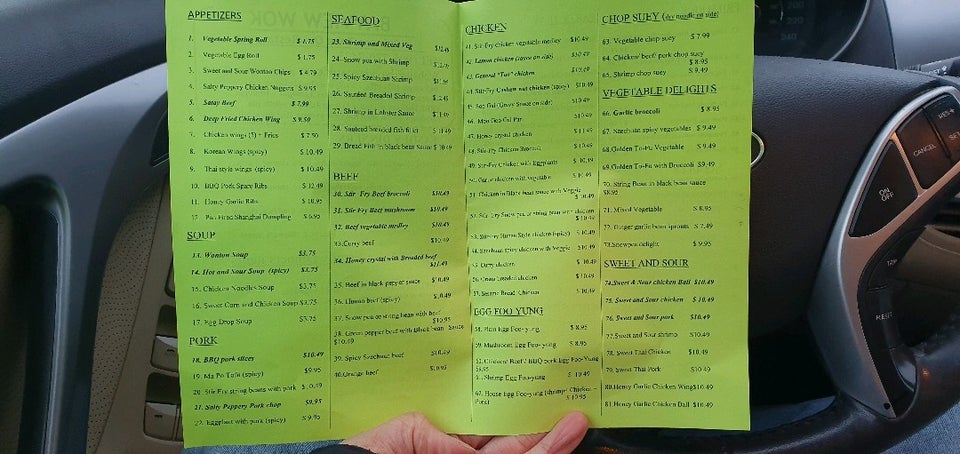 APPETIZERS
1. Vegetable Spring Roll $ 1.75
2. Vegetable Egg Roll $ 1.75
3. Sweet and Sour Wonton Chips $ 4.79
4. Salty Peppery Chicken Nuggets $ 9.95
5. Satay Beef $ 7.99
6. Deep Fried Chicken Wing $ 9.50
7. Chicken wings (5) + Fries $ 7.50
8. Korean Wings (spicy) $ 10.49
9. Thai style wings (spicy) $ 10.49
10. BBQ Pork Spare Ribs $ 12.49
11. Honey Garlic Ribs $ 10.95
12. Pan Fried Shanghai Dumpling $ 6.95
SOUP
13. Wonton Soup $3.75
14. Hot and Sour Soup (spicy) $3.75
15. Chicken Noodles Soup $3.75
16. Sweet Corn and Chicken Soup $3.75
17. Egg Drop Soup $3.75
PORK
18. BBQ pork slices $10.49
19. Ma Po Tofu (spicy) $9.95
20. Stir Fry string beans with pork $ 10.49
21. Salty Peppery Pork chop $9.95
22. Eggplant with pork (spicy) $ 9.95
SEAFOOD
23. Shrimp and Mixed Veg
24. Snow pea with Shrimp
25. Spicy Szechuan Shrimp
26. Sautéed Breaded Shrimp
27. Shrimp in Lobster Sauce
28. Sauteed breaded fish fillet
29. Bread Fish in black bean Sauce $ 10.49
BEEF
30. Stir Fry Beef broccoli $10.49
31. Stir Fry Beef mushroom $10.49
32. Beef vegetable medley $10.49
33. Curry beef $10.49
34. Honey crystal with Breaded beef
35. Beef in black pepper sauce $10.49
36. Hunan beef (spicy) $10.49
37. Snow pea or string bean with beef
$10.95
38. Green pepper beef with Black bean Sauce
$10.49
39. Spicy Szechuan beef $10.49
40. Orange beef $10.95
CHICKEN
41. Stir Fry chicken vegetable medley $10.49
42. Lemon chicken (sauce on side) $10.49
43. General "Tao" chicken $10.49
44. Stir-Fry Cashew nut chicken (spicy) $10.49
45. Soo Gai (Gravy Sauce on side) $10.49
46. Moo Goo Gai Pan $10.49
47. Honey crystal chicken
48. Stir-Fry Chicken Broccoli $ 10.49
49. Stir-Fry Chicken with Eggplants $ 10.49
50. chicken with vegetable $ 10.49
51. Chicken in Black bean sauce with Veggie
$ 10.49
52. Stir Fry Snow pea or string bean with chicken
$ 10.49
53. Stir-Fry Hunan Style chicken (spicy) $ 10.49
54. Szechuan chicken with Veggie $ 10.49
55. Curry chicken $ 10.49
56. breaded chicken $ 10.49
57. Sesame Bread Chicken $ 10.49
EGG FOO YUNG
58. Plain Egg Foo-yung $ 8.95
59. Mushroom Egg Foo-yung $ 8.95
60. Chicken/ Beef / BBQ pork Egg Foo-Yung
$9.95
61. Shrimp Egg Foo-yung $ 10.49
62. House Egg Foo-yung (shrimp/ Chicken –
Pork) $ 10.95
CHOP SUEY (dry noodle on side)
63. Vegetable chop suey $ 7.99
64. Chicken/ beef/ pork chop suey
$ 8.95
65. Shrimp chop suey $ 9.49
VEGETABLE DELIGHTS
66. Garlic broccoli $ 8.95
67. Szechuan spicy vegetables $ 9.49
68. Golden To-Fu Vegetable $ 9.49
69. Golden To-Fu with Broccoli $ 9.49
70. String Bean in black bean sauce
$8.95
71. Mixed Vegetable $ 8.95
72. Ginger garlic bean sprouts $ 7.49
73. Snowpea delight $ 9.95
SWEET AND SOUR
74. Sweet & Sour chicken Ball $10.49
75. Sweet and Sour chicken $ 10.49
76. Sweet and Sour pork $10.49
77. Sweet and Sour shrimp $10.49
78. Sweet Thai Chicken $10.49
79. Sweet Thai Pork $10.49
80. Honey Garlic Chicken Wing $10.49
81. Honey Garlic Chicken Ball $10.49
RES +
CANCEL
SET
ON
OFF
RESET
200
220
240